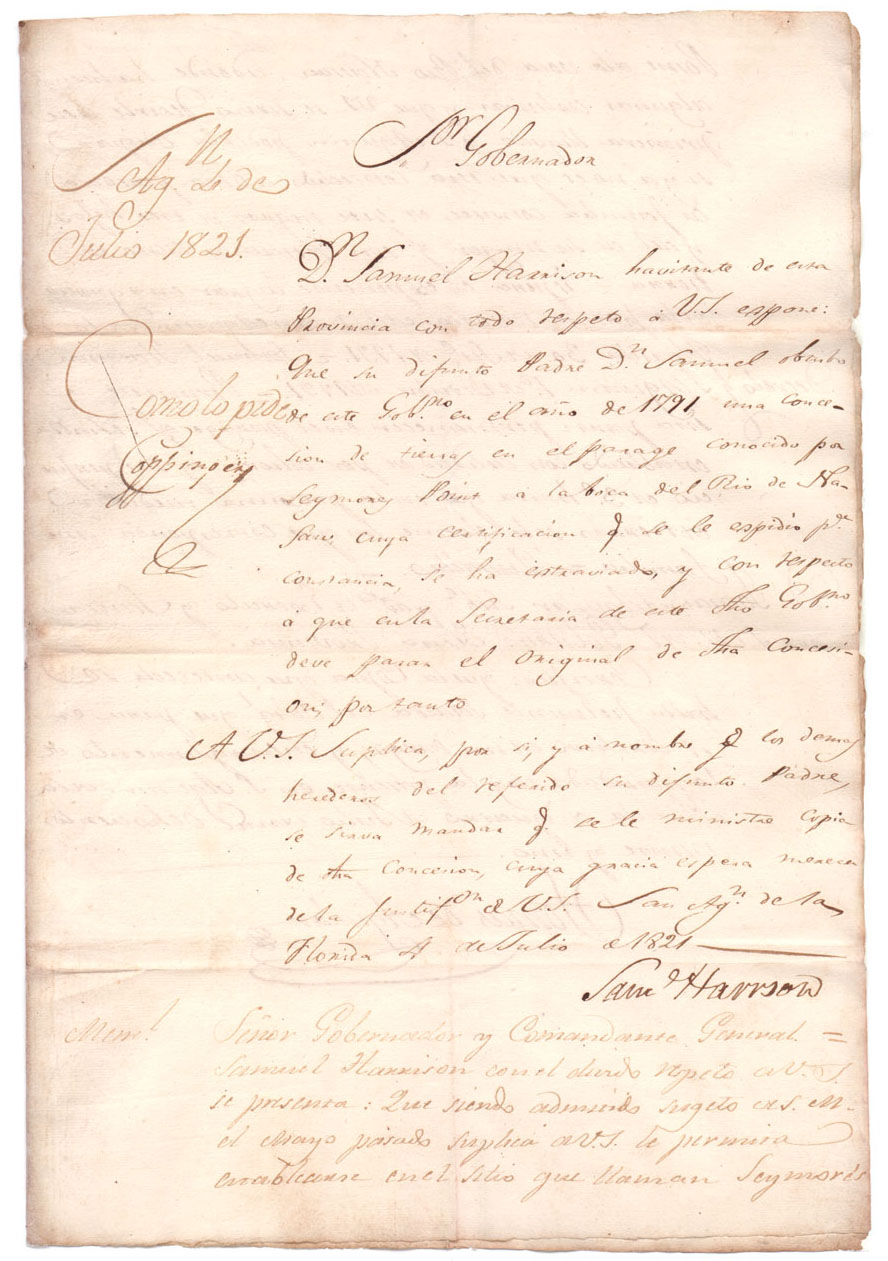 Sn
Ag. 4 de
Julio 1821.
Como lo pide
Coppinger
Sor Gobernador
Dn. Samuel Harrison havitante de esta
Provincia con todo respeto á V.S. espone:
Que su difunto Padre Dn. Samuel obtubo
de este Gobno. en el año de 1791 una conce-
sion de tierras en el parage conocido por
Seymores Point á la boca del Rio de Na-
sau, cuya certificacion q. se le espidio pa.
constancia, se ha estraviado, y con respecto
á que en la Secretaria de este dho. Gobno.
deve parar el original de dha Concesi-
on, por tanto
A V.S. Suplica, por si, y á nombre de los demas
herederos del referido su difunto Padre,
se sirva mandar q. se le ministre copia
de dha Concesion, cuya gracia espera merecer
de la justifon. de V.S. San Agn. de la
Florida 4 de Julio de 1821
Saml. Harrson
Meml.
Señor Gobernador y Comandante General =
Samuel Harrison con el devido respeto á V.S.
se presenta: Que siendo admitido sugeto de S. M.
el Mayo pasado suplica á V.S. le permita
establecerse en el sitio que llaman Seymores